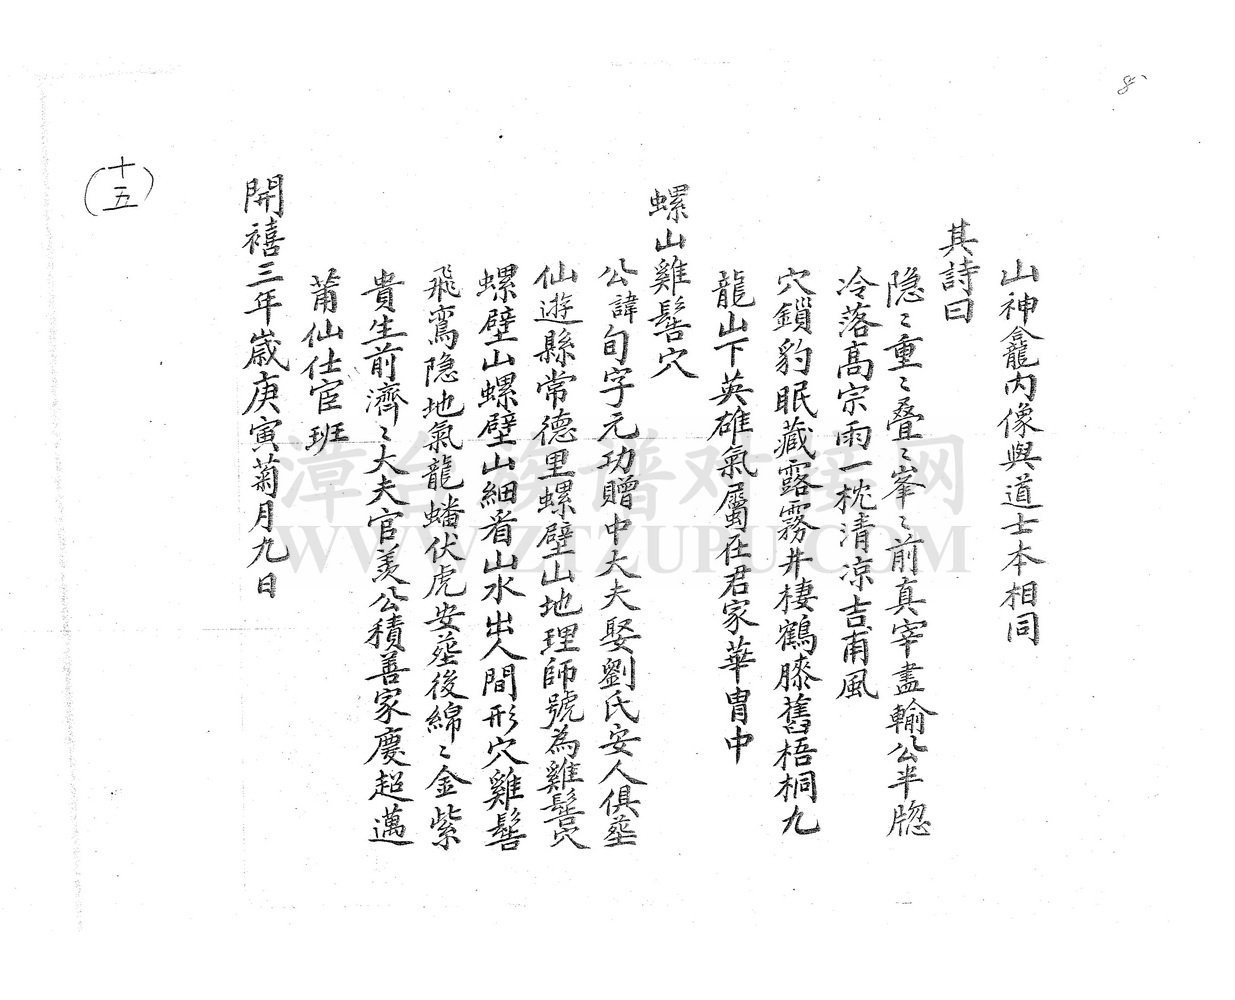 8、
山神龕内像與道士本相同
其詩曰
隐〻重〻叠〻峯〻前真宰盡輸公半牕
冷落高宗雨一枕清凉吉甫風
穴鎖豹眠藏露霧井棲鶴膝舊梧桐九
龍山下英雄氣屬在君家華胄中
螺山雞髻穴
公諱旬字元功贈中大夫娶劉氏安人俱塟
仙遊縣常德里螺壁山地理師號為雞髻穴
螺壁山螺壁山細看山水出人間形穴雞髻
飛鸞隐地氣龍蟠伏虎安塟後綿〻金紫
貴生前濟〻大夫官羡公積善家慶超邁
莆仙仕宦班
開禧三年嵗庚寅菊月九日
(十五)
漳台族谱对接网
WWW.ZTZUPU.COM